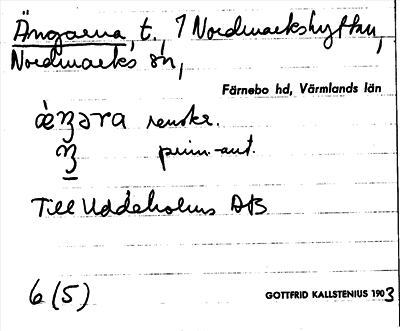 Ängarna, t., 1 Nordmarkshyttan,
Nordmarks sn,
Färnebo hd, Värmlands län
renskr.
prim.-ant.
Till Uddeholms AB
6 (5)
GOTTFRID KALLSTENIUS 1903